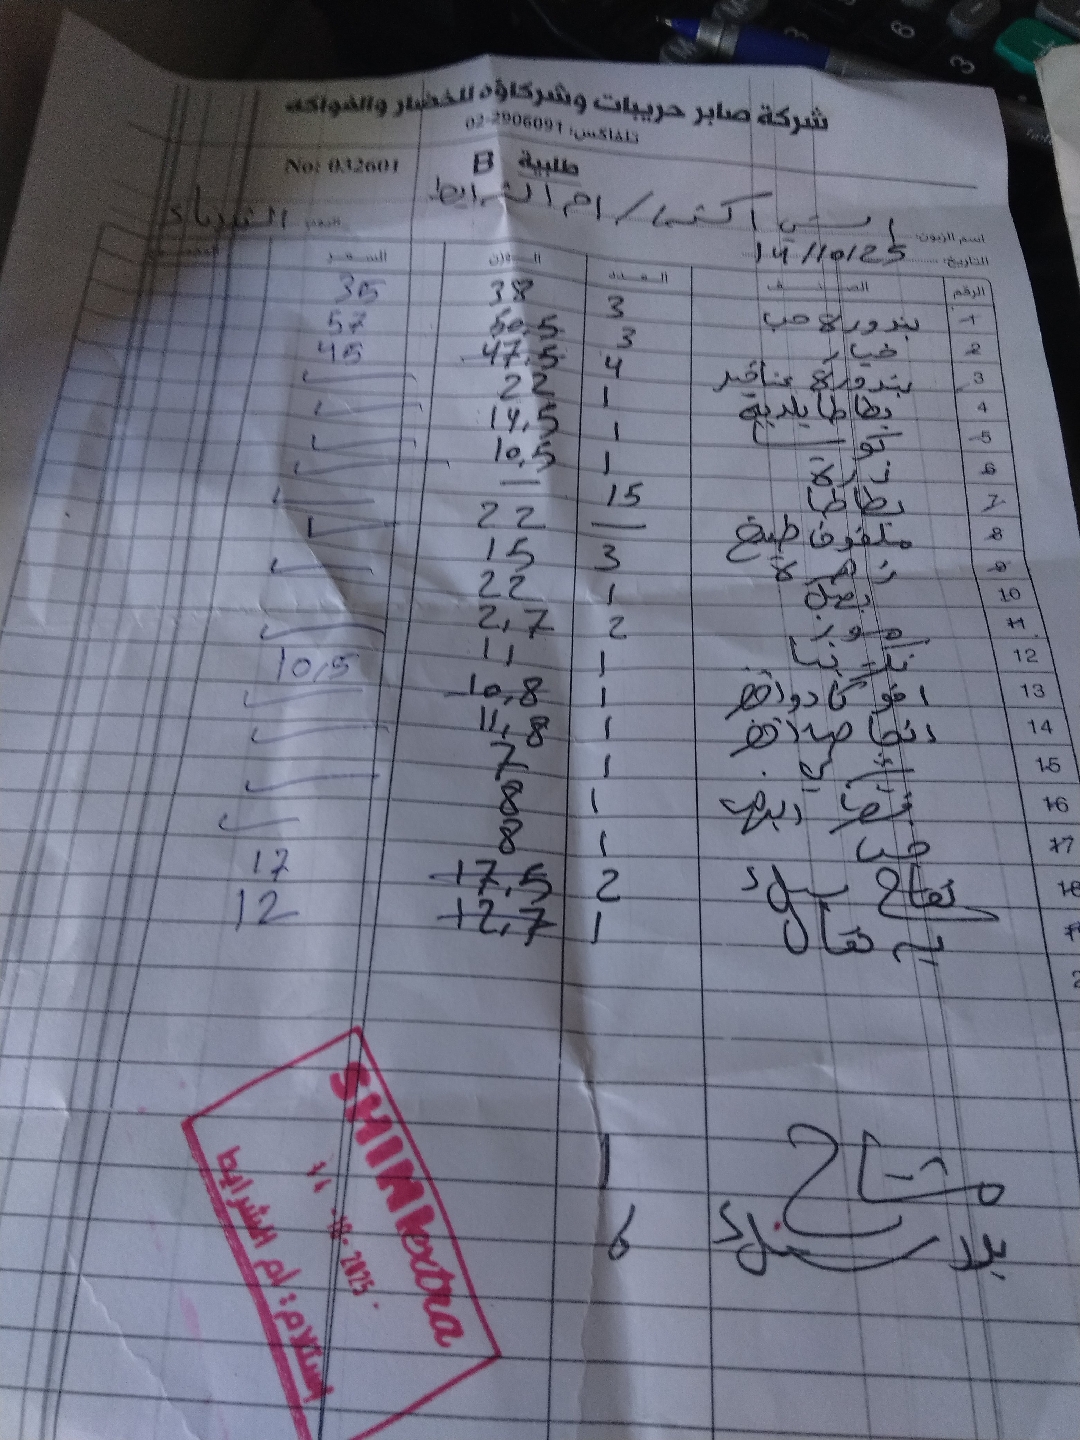 شركة صابر حريبات وشركاؤه للخضار والفواكه
تلفاكس: 02-2906091
طلبية B No: 032601
اسم الزبون: اكسترا / ام الشرايط
التاريخ: 14/10/25
الرقم الصنف العدد الوزن السعر
1 بندورة حب 3 38 35
2 خيار 3 50,5 57
3 بندورة عناقيد 4 47,5 45
4 بطاطا بلدية 1 22 ✓
5 توم 1 14,5 ✓
6 ذرة 1 10,5 ✓
7 بطاطا 15 — ✓
8 ملفوف طبيخ — 22 ✓
9 زهرة 3 15 ✓
10 بصل 1 22 ✓
11 موز 2 2,7
12 1 11 ✓
13 افوكادو 1 10,8 10,5
14 1 11,8 ✓
15 1 7 ✓
16 1 8 ✓
17 1 8 ✓
18 تفاح سبلد 2 17,5 17
19 برتقال 1 12,7 12
2
تفاح 1
6
SHINIextra
14-10-2025
إستلام: ام الشرايط